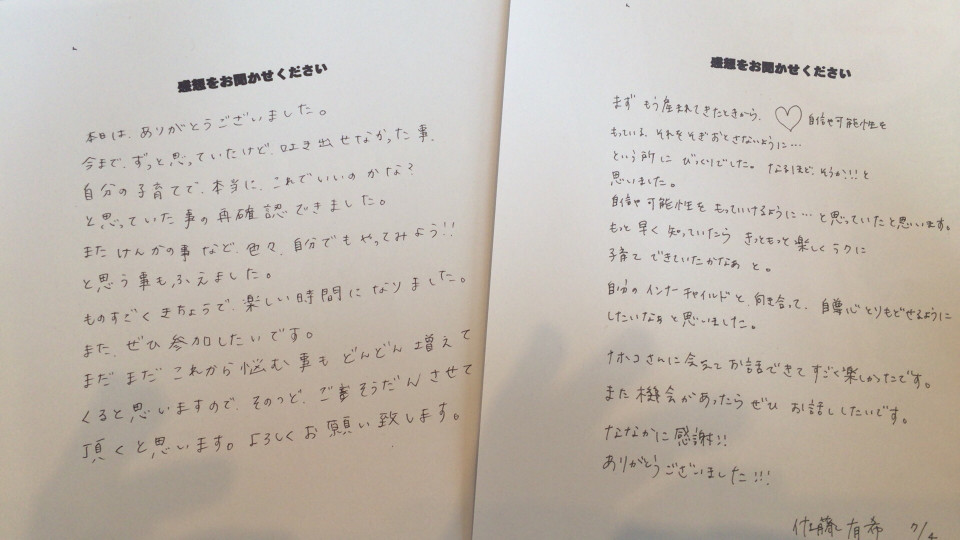 感想をお聞かせください
本日は、ありがとうございました。
今まで、ずっと思っていたけど、吐き出せなかった事、
自分の子育てで、本当に、これでいいのかな?
と思っていた事の再確認できました。
またけんかの事など、色々、自分でもやってみよう!!
と思う事もふえました。
ものすごくきちょうで、楽しい時間になりました。
また、ぜひ参加したいです。
まだまだこれから悩む事もどんどん増えて
くると思いますので、そのつど、ごそうだんさせて
頂くと思います。よろしくお願い致します。
感想をお聞かせください
まずもう産まれてきたときから、♡自信や可能性を
もっている、それをそぎおとさないように…
という所にびっくりでした。なるほど、そうか!!!と
思いました。
自信や可能性をもっていけるように…と思っていたと思います。
もっと早く知っていたらきっともっと楽しくラクに
子育てできていたかなぁと。
自分のインナーチャイルドと、向き合って、自尊心とりもどせるように
したいなぁと思いました。
ナホコさんに会えてお話できてすごく楽しかったです。
また機会があったらぜひお話ししたいです。
ななかに感謝!!
ありがとうございました!!!
佐藤有希 7/4